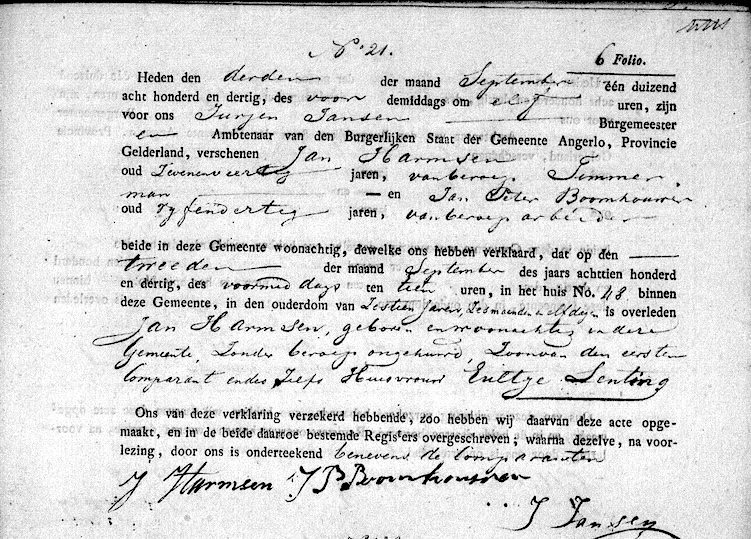 No 21.
6 Folio.
Heden den derden der maand September één duizend
acht honderd en dertig, des voor demiddags om elf uren, zijn
voor ons Jurjen Jansen Burgemeester
en Ambtenaar van den Burgerlijken Staat der Gemeente Angerlo, Provincie
Gelderland, verschenen Jan Harmsen
oud zevenveertig jaren, van beroep Timmer
man — en Jan Peter Boomhouwer
oud vyfendertig jaren, van beroep arbeider
beide in deze Gemeente woonachtig, dewelke ons hebben verklaard, dat op den
tweeden der maand September des jaars achttien honderd
en dertig, des voormiddags ten tien uren, in het huis No. 48 binnen
deze Gemeente, in den ouderdom van Zestien Jaren, zes maanden en elf dagen is overleden
Jan Harmsen, geboren en woonachtig in deze
Gemeente, zonder beroep ongehuwd, Zoon van den eersten
Comparant en des zelfs Huisvrouw Enltje Lenting
Ons van deze verklaring verzekerd hebbende, zoo hebben wij daarvan deze acte opge-
maakt, en in de beide daartoe bestemde Registers overgeschreven; waarna dezelve, na voor-
lezing, door ons is onderteekend benevens de Comparanten
J Harmsen J P Boomhouwer
J Jansen